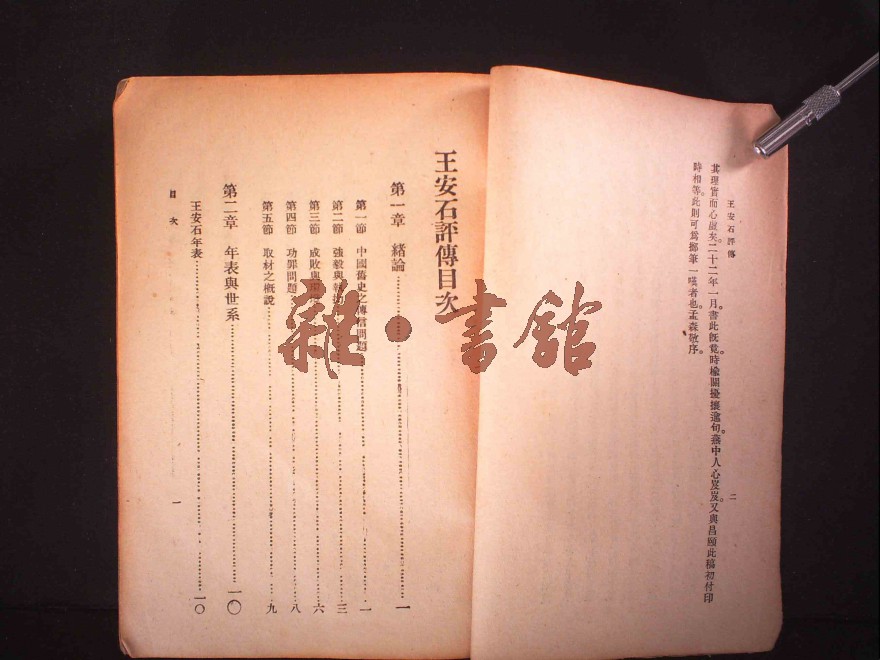 王安石評傳
其理實而心誠矣。二十二年一月。書此旣竟。時楡關擾攘逾旬。燕中人心岌岌。又與昌頤此稿初付印
時相等。此則可爲擲筆一嘆者也。孟森敬序。
二
王安石評傳目次
第一章 緒論……一
第一節 中國舊史之傳信問題……一
第二節 強毅與執……三
第三節 成敗與……六
第四節 功罪問題……八
第五節 取材之概說……九
第二章 年表與世系……一〇
王安石年表……一〇
目次
一
雜·書館